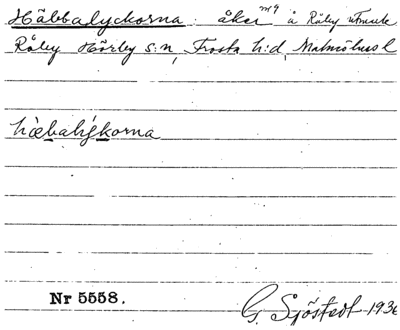 Häbbalyckorna: åker å Råby utmark
Råby Hörby s:n, Frosta h:d, Malmöhus l
hæbalýkorna
Nr 5558.
G. Sjöstedt 1936